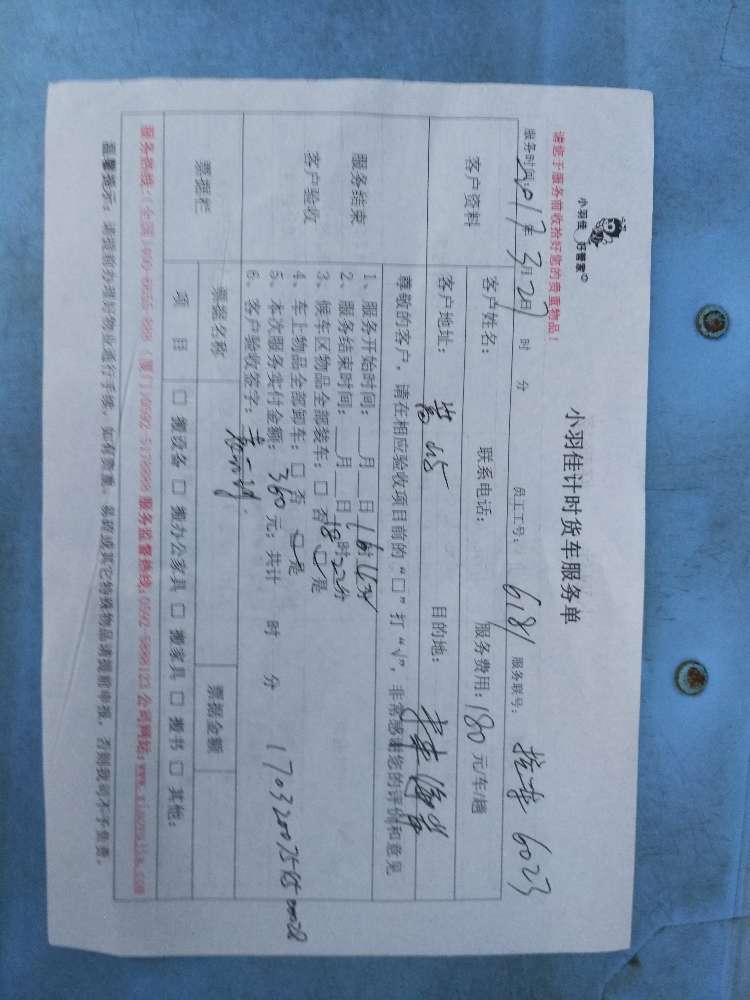 小羽佳 好管家
小羽佳计时货车服务单
请您于服务前收拾好您的贵重物品！
服务时间: 2017年3月27日 时 分 员工工号: 6181 服务联号: 6023
客户资料
客户姓名: 联系电话: 服务费用: 180元/车/趟
客户地址: 目的地:
尊敬的客户，请在相应验收项目前的“□”打“√”，非常感谢您的评价和意见
服务结束
客户验收
1、服务开始时间: __月__日16时
2、服务结束时间: __月__日18时22分
3、候车区物品全部装车: □ 否 □ 是
4、车上物品全部卸车: □ 否 □ 是
5、本次服务实付金额: 360元; 共计 时 分
6、客户验收签字:
票据栏
票据名称 票据金额
项目 □ 搬设备 □ 搬办公家具 □ 搬家具 □ 搬书 □ 其他:
服务热线: (全国)400-6655-888 (厦门)0592-5178888 服务监督热线: 0592-5888123 公司网站: www.xiaoyujia.com
温馨提示: 请提前办理好物业通行手续，如有贵重、易碎或其它特殊物品请提前申报，否则我司不予负责。